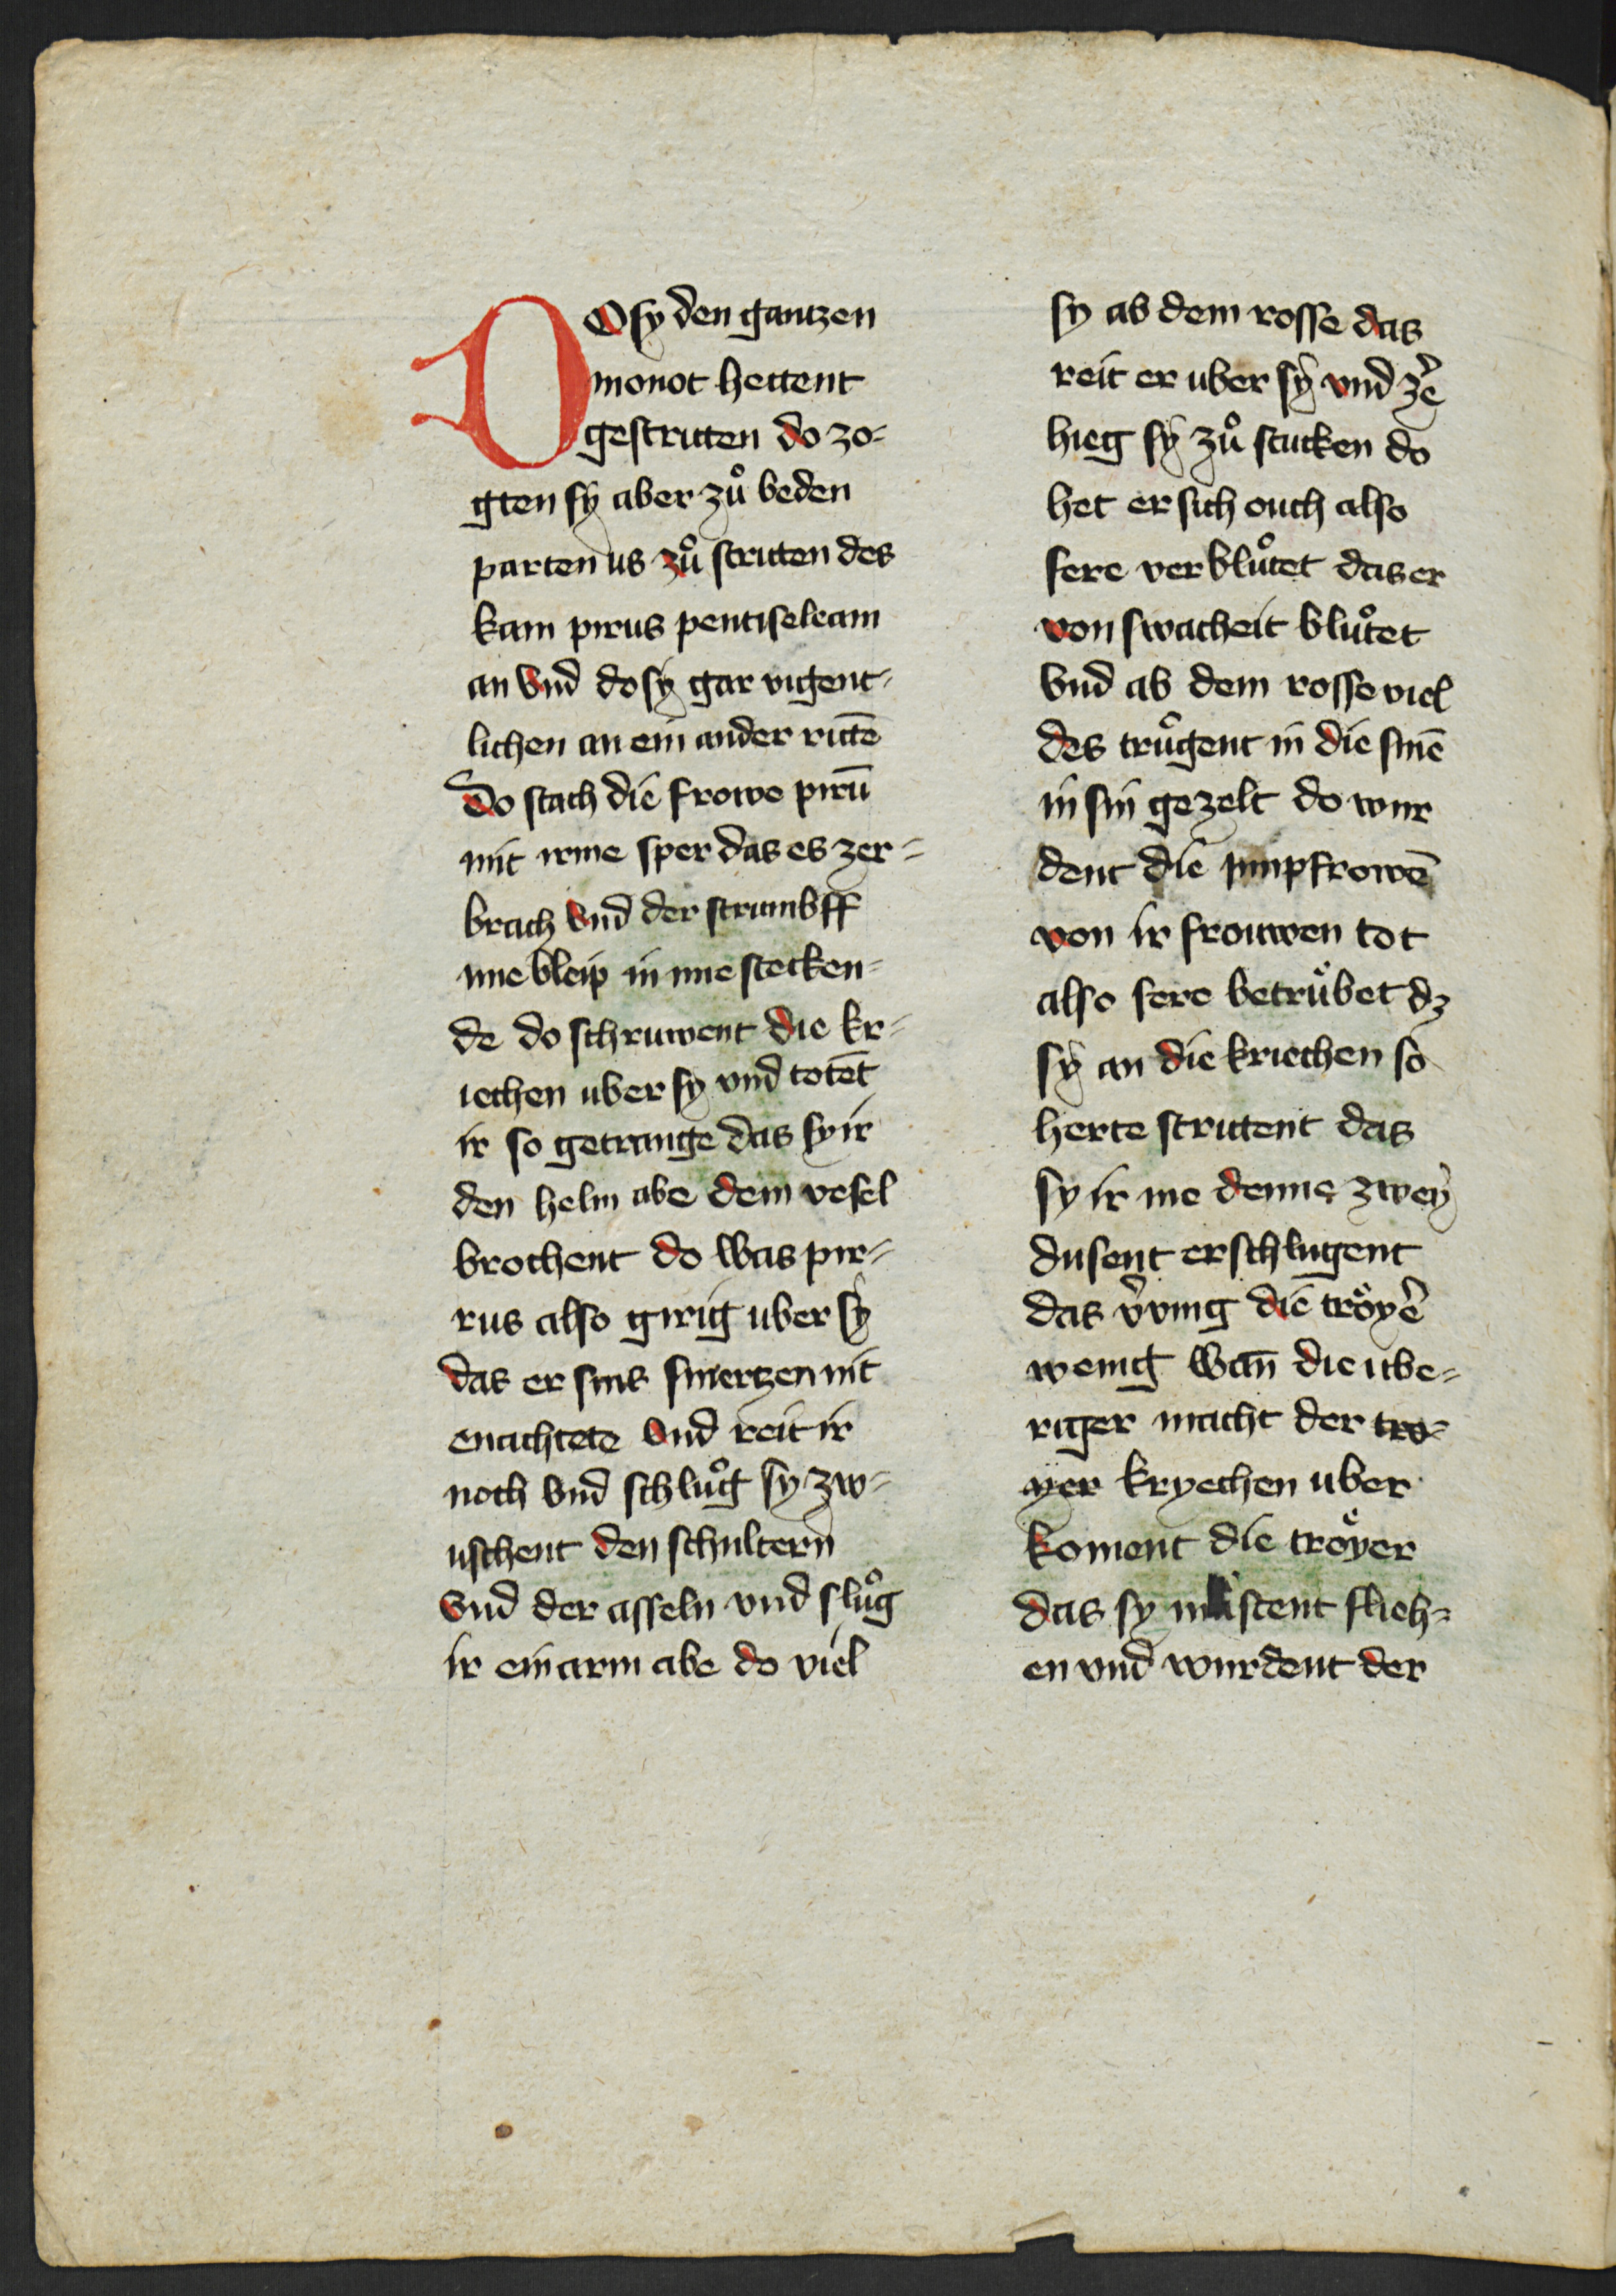 DO sy den gantzen
monot hettent
gestritten do zo-
gten sÿ aber zuͦ beden
parten us zuͦ stritten des
kam pirus pentiseleam
an vnd do sÿ gar vigent-
lichen an ein ander rittē
Do stach die frowe pirū
mit irme sper das es zer-
brach vnd der strumbff
ime bleip in ime stecken-
de do schruwent die kr-
iechen uber sy vnd totēt
ir so getrange das sy ir
den helm abe dem vesel
brochent do was pir-
rus also girig uber sÿ
das er sins smertzen nit
enachtete vnd reit ir
noch vnd schluͦg sy zw-
uschent den schultern
vnd der asseln vnd sluͦg
ir ein arm abe do viel
sy ab dem rosse das
reit er uber sÿ vnd zē
hieg sÿ zuͦ stucken do
het er sich ouch also
sere verbluͦtet das er
von swacheit bluͦtet
vnd ab dem rosse viel
des truͦgent in die sinē
in sin gezelt do wur
dent die jmpfrowē
von ir frouwen tot
also sere betruͤbet dz
sÿ an die kriechen so
herte strittent das
sy ir me denne zweÿ
dusent erschlugent
das v̄ving die troͤyē
wenig wan̄ die ube-
riger macht der tro-
yer kryechen uber
koment die troͤyer
das sy muͤstent flieh-
en vnd wurdent der